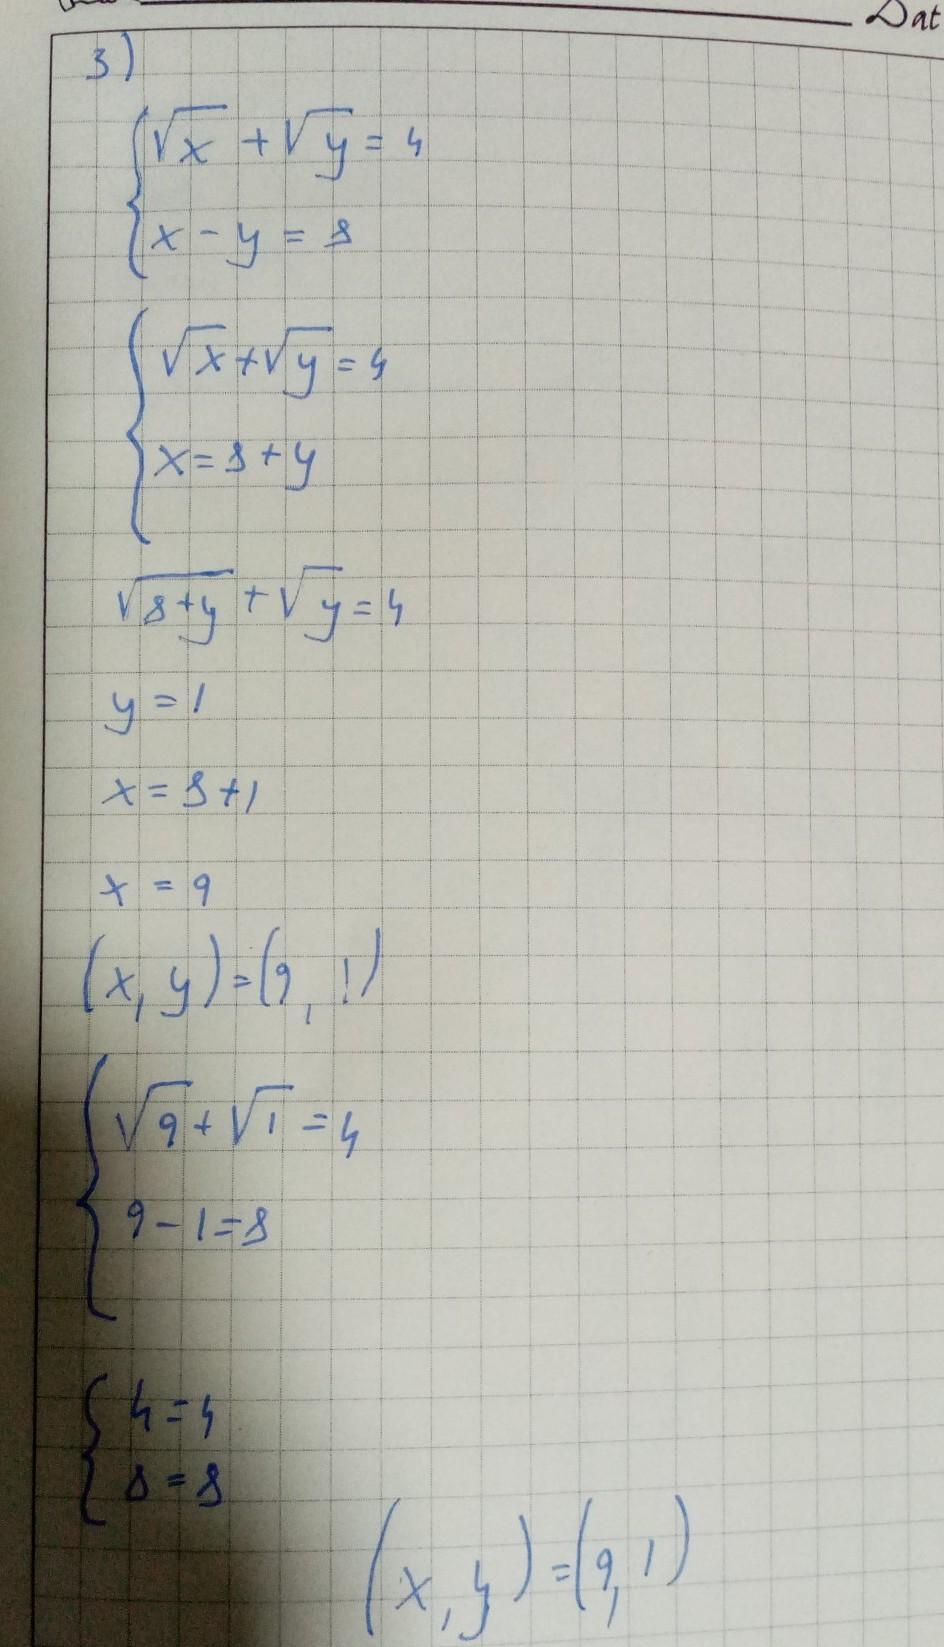 Dat
3)
√x + √y = 4
x - y = 8
√x + √y = 4
x = 8 + y
√8+y + √y = 4
y = 1
x = 8 + 1
x = 9
(x, y) = (9, 1)
√9 + √1 = 4
9 - 1 = 8
4 = 4
8 = 8
(x, y) = (9, 1)